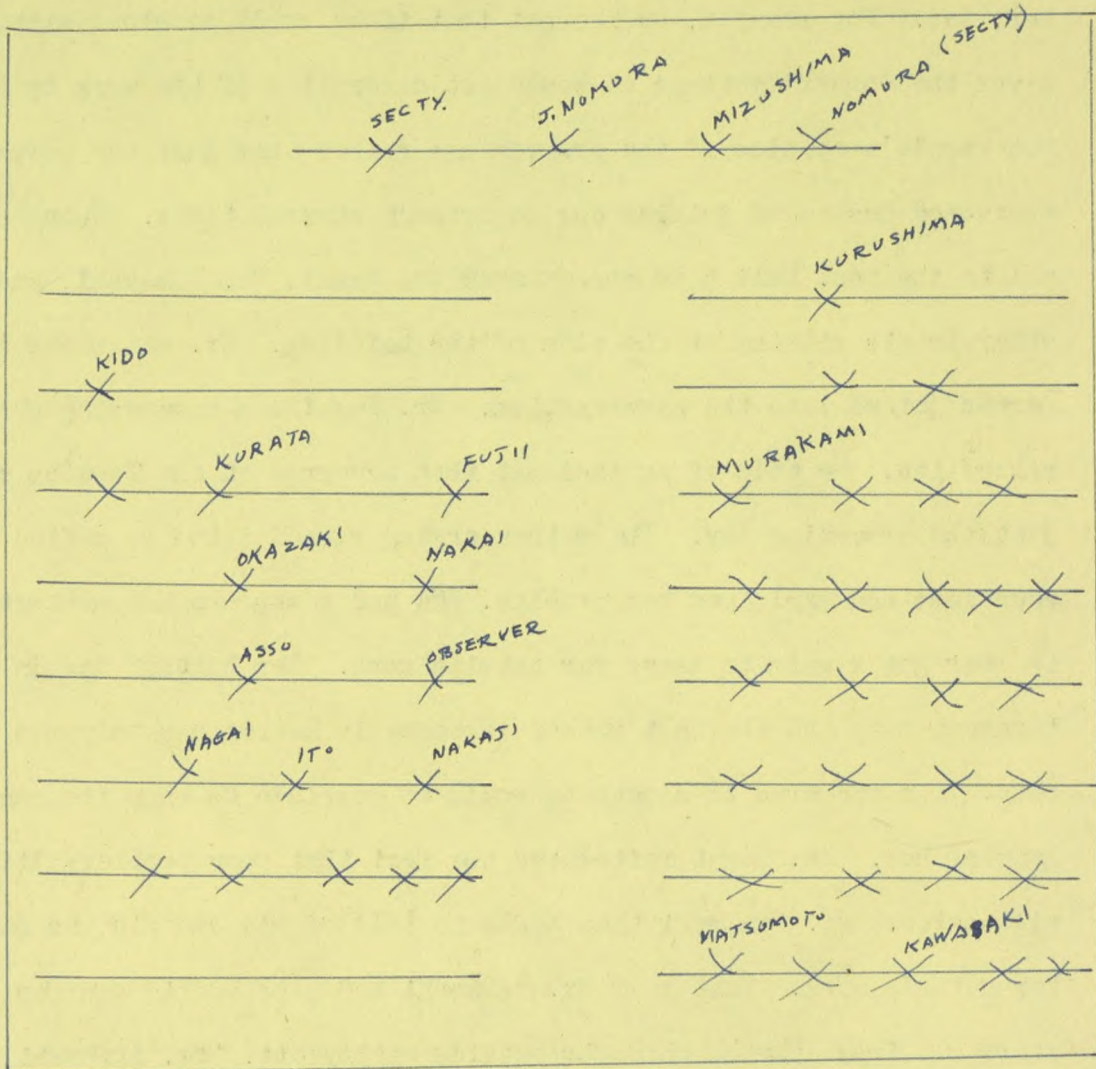 SECTY. J. NOMURA MIZUSHIMA NOMURA (SECTY)
KURUSHIMA
KIDO
KURATA FUJII MURAKAMI
OKAZAKI NAKAI
ASSO OBSERVER
NAGAI ITO NAKAJI
MATSUMOTO KAWASAKI